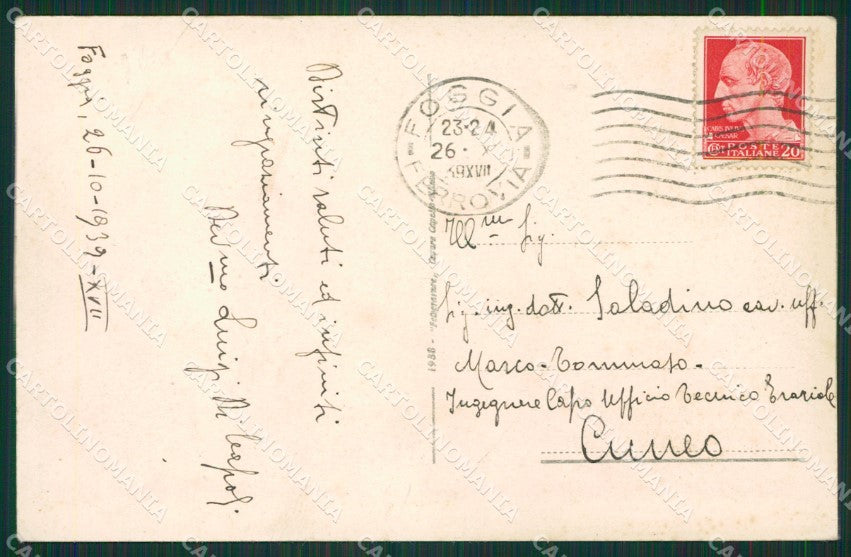 Foggia, 26-10-1939-XVII
Distinti saluti ed infiniti
ringraziamenti.
Dev mo Luigi Di Leapoli
FOGGIA
23-24
26 · X
39XVII
FERROVIA
CAIUS JULIUS
CAESAR
POSTE
ITALIANE 20
1938 -
Ill.mo Sig.
Sig. ing. dott. Saladino cav. uff.
Marco-Tommaso-
Ingegnere Capo Ufficio Tecnico Erariale
Cuneo
CARTOLINOMANIA